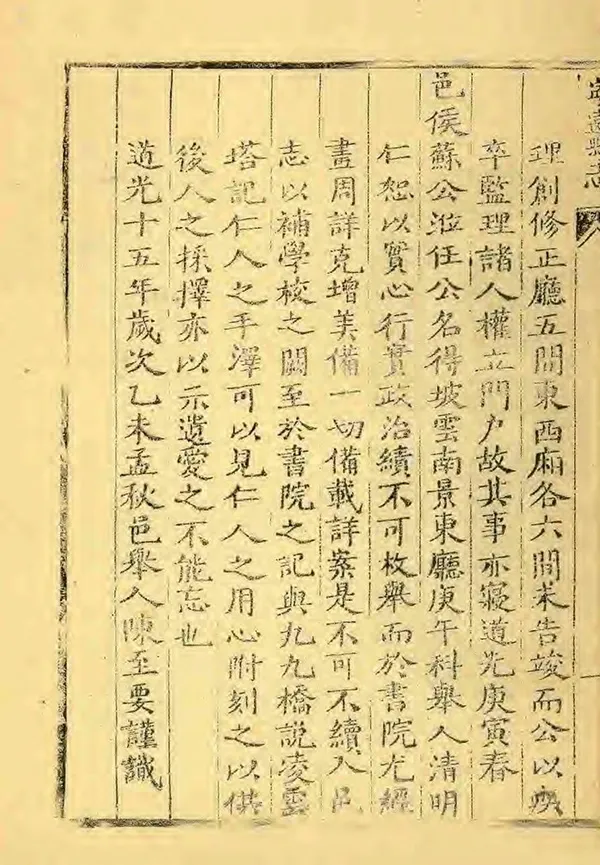 寧遠縣志
理創修正廳五間東西廂各六間未告竣而公以疾
卒監理諸人權立門户故其事亦寢道光庚寅春
邑侯蘇公涖任公名得坡雲南景東廳庚午科舉人清明
仁恕以實心行實政治績不可枚舉而於書院尤經
畫周詳克增美備一切備載詳案是不可不續入邑
志以補學校之闕至於書院之記與九九橋説凌雲
塔記仁人之手澤可以見仁人之用心附刻之以供
後人之採擇亦以示遺愛之不能忘也
道光十五年歲次乙未孟秋邑舉人陳至要謹識